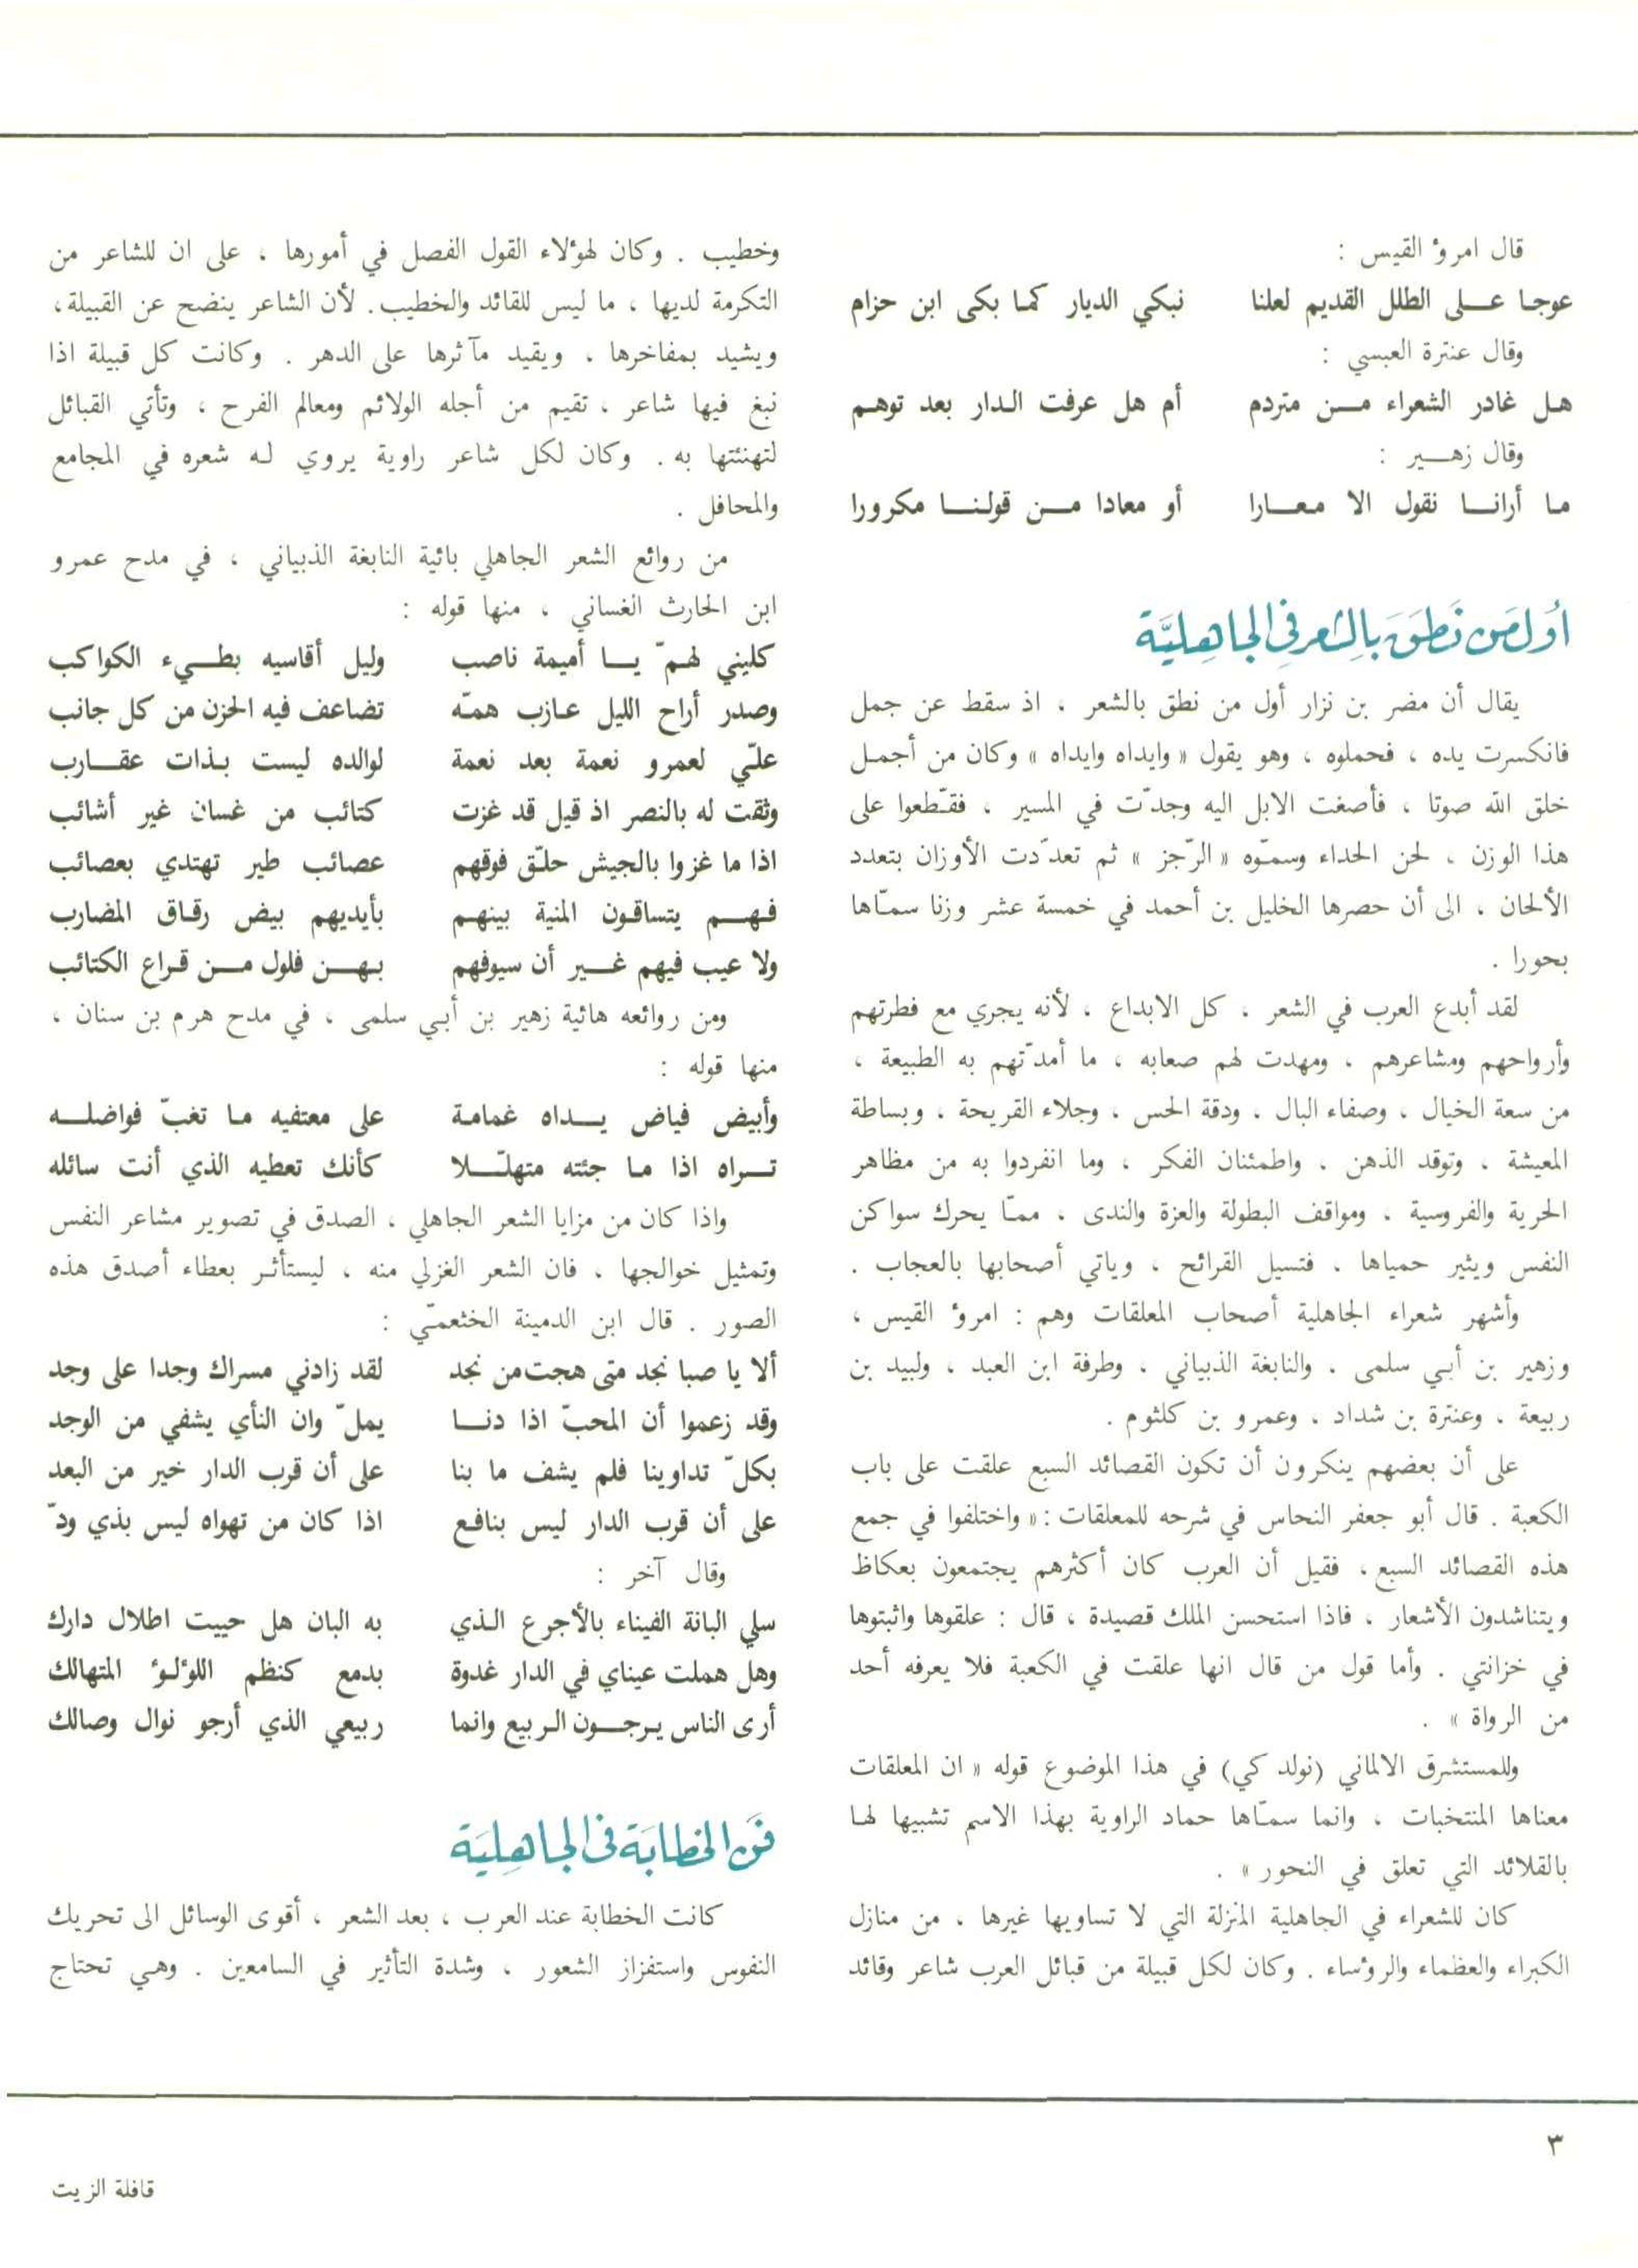 قال امرؤ القيس :
عوجـا عــلى الطلل القديم لعلنا نبكي الديار كمـا بكى ابن حزام
وقال عنترة العبسي :
هـل غادر الشعراء مــن متردم أم هل عرفت الـدار بعد توهـم
وقال زهــير :
مـا أرانــا نقول الا معــارا أو معادا مــن قولنــا مكرورا
أول من نَطَقَ بِالشعر في الجاهِليَّة
يقال أن مضر بن نزار أول من نطق بالشعر ، اذ سقط عن جمل
فانكسرت يده ، فحملوه ، وهو يقول « وايداه وايداه » وكان من أجمـل
خلق الله صوتا ، فأصغت الابل اليه وجدّت في المسير ، فقـطّعوا على
هذا الوزن ، لحن الحداء وسمّوه « الرّجز » ثم تعدّدت الأوزان بتعدد
الألحان ، الى أن حصرها الخليل بن أحمد في خمسة عشر وزنا سمّاها
بحورا .
لقد أبدع العرب في الشعر ، كل الابداع ، لأنه يجري مع فطرتهم
وأرواحهم ومشاعرهم ، ومهدت لهم صعابه ، ما أمدّتهم به الطبيعة ،
من سعة الخيال ، وصفاء البال ، ودقة الحس ، وجلاء القريحة ، وبساطة
المعيشة ، وتوقد الذهن ، واطمئنان الفكر ، وما انفردوا به من مظاهر
الحرية والفروسية ، ومواقف البطولة والعزة والندى ، ممّا يحرك سواكن
النفس ويثير حمياها ، فتسيل القرائح ، وياتي أصحابها بالعجاب .
وأشهر شعراء الجاهلية أصحاب المعلقات وهم : امرؤ القيس ،
وزهير بن أبـي سلمى ، والنابغة الذبياني ، وطرفة ابن العبد ، ولبيد بن
ربيعة ، وعنترة بن شداد ، وعمرو بن كلثوم .
على أن بعضهم ينكرون أن تكون القصائد السبع علقت على باب
الكعبة . قال أبو جعفر النحاس في شرحه للمعلقات : « واختلفوا في جمع
هذه القصائد السبع ، فقيل أن العرب كان أكثرهم يجتمعون بعكاظ
ويتناشدون الأشعار ، فاذا استحسن الملك قصيدة ، قال : علقوها واثبتوها
في خزانتي . وأما قول من قال انها علقت في الكعبة فلا يعرفه أحد
من الرواة » .
وللمستشرق الالماني (نولد كي) في هذا الموضوع قوله « ان المعلقات
معناها المنتخبات ، وانما سمّاها حماد الراوية بهذا الاسم تشبيها لهـا
بالقلائد التي تعلق في النحور » .
كان للشعراء في الجاهلية المنزلة التي لا تساويها غيرها ، من منازل
الكبراء والعظماء والرؤساء . وكان لكل قبيلة من قبائل العرب شاعر وقائد
وخطيب . وكان لهؤلاء القول الفصل في أمورها ، على ان للشاعر من
التكرمة لديها ، ما ليس للقائد والخطيب . لأن الشاعر ينضح عن القبيلة ،
ويشيد بمفاخرها ، ويقيد مآثرها على الدهر . وكانت كل قبيلة اذا
نبغ فيها شاعر ، تقيم من أجله الولائم ومعالم الفرح ، وتأتي القبائل
لتهنئتها به . وكان لكل شاعر راوية يروي لـه شعره في المجامع
والمحافل .
من روائع الشعر الجاهلي بائية النابغة الذبياني ، في مدح عمرو
ابن الحارث الغساني ، منها قوله :
كليني لهـمّ يــا أميمة ناصب وليل أقاسيه بطــيء الكواكب
وصدر أراح الليل عـازب همّـه تضاعف فيه الحزن من كل جانب
علـيّ لعمرو نعمة بعد نعمة لوالده ليست بـذات عقــارب
وثقت له بالنصر اذ قيل قد غزت كتائب من غسان غير أشائب
اذا ما غزوا بالجيش حلّـق فوقهم عصائب طير تهتدي بعصائب
فـهــم يتساقـون المنية بينهـم بأيديهم بيض رقـاق المضارب
ولا عيب فيهم غــير أن سيوفهم بـهــن فلول مــن قـراع الكتائب
ومن روائعه هائية زهير بن أبـي سلمى ، في مدح هرم بن سنان ،
منها قوله :
وأبيض فياض يــداه غمامـة على معتفيه مـا تغبّ فواضلــه
تــراه اذا مـا جئته متهلّــلا كأنك تعطيه الذي أنت سائله
واذا كان من مزايا الشعر الجاهلي ، الصدق في تصوير مشاعر النفس
وتمثيل خوالجها ، فان الشعر الغزلي منه ، ليستأثـر بعطاء أصدق هذه
الصور . قال ابن الدمينة الخثعمـيّ :
ألا يا صبا نجد متى هجت من نجد لقد زادني مسراك وجدا على وجد
وقد زعموا أن المحبّ اذا دنــا يملّ وان النأي يشفي من الوجد
بكلّ تداوينا فلم يشف ما بنا على أن قرب الدار خير من البعد
على أن قرب الدار ليس بنافـع اذا كان من تهواه ليس بذي ودّ
وقال آخر :
سلي البانة الفيناء بالأجرع الـذي به البان هل حييت اطلال دارك
وهل هملت عيناي في الدار غدوة بدمع كنظم اللؤلـؤ المتهالك
أرى الناس يـرجــون الربيع وانما ربيعي الذي أرجو نوال وصالك
فَن الخطابَة في الجاهِليَة
كانت الخطابة عند العرب ، بعد الشعر ، أقوى الوسائل الى تحريك
النفوس واستفزاز الشعور ، وشدة التأثير في السامعين . وهـي تحتاج
٣
قافلة الزيت